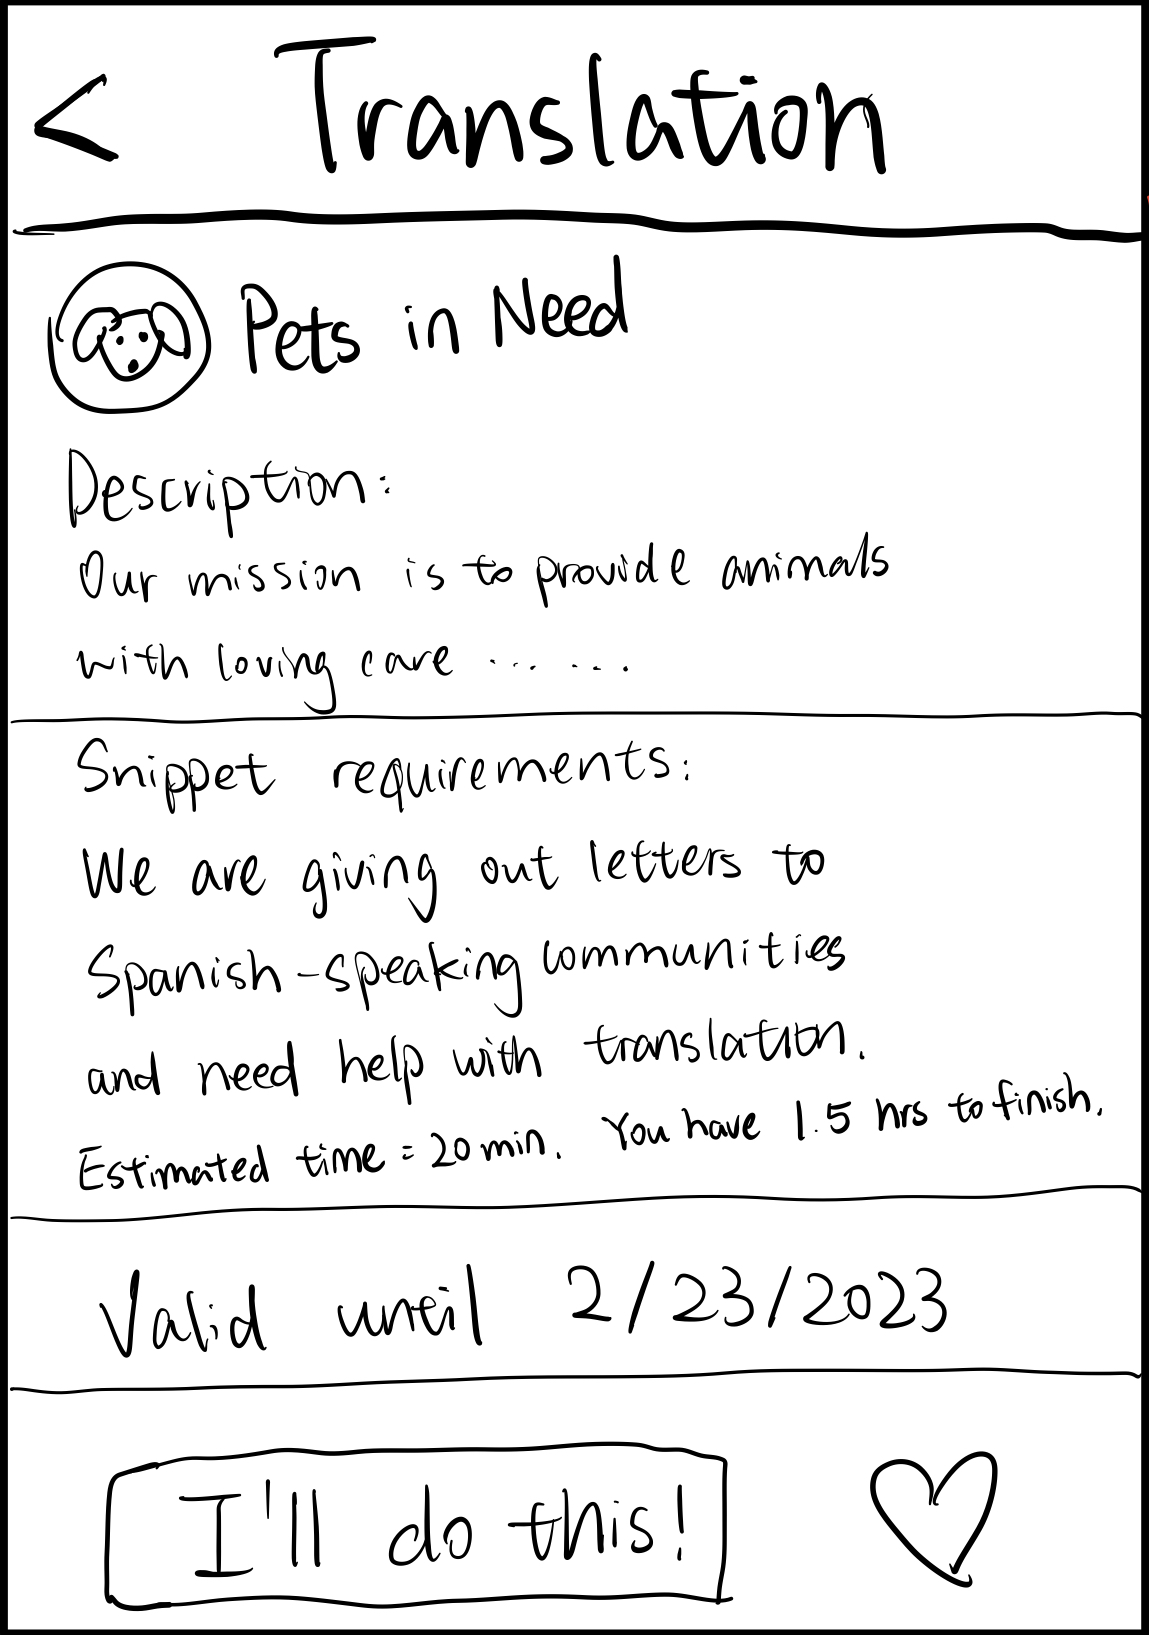 < Translation
Pets in Need
Description:
Our mission is to provide animals
with loving care ... ...
Snippet requirements:
We are giving out letters to
Spanish-speaking communities
and need help with translation.
Estimated time = 20 min. You have 1.5 hrs to finish.
Valid until 2/23/2023
I'll do this!